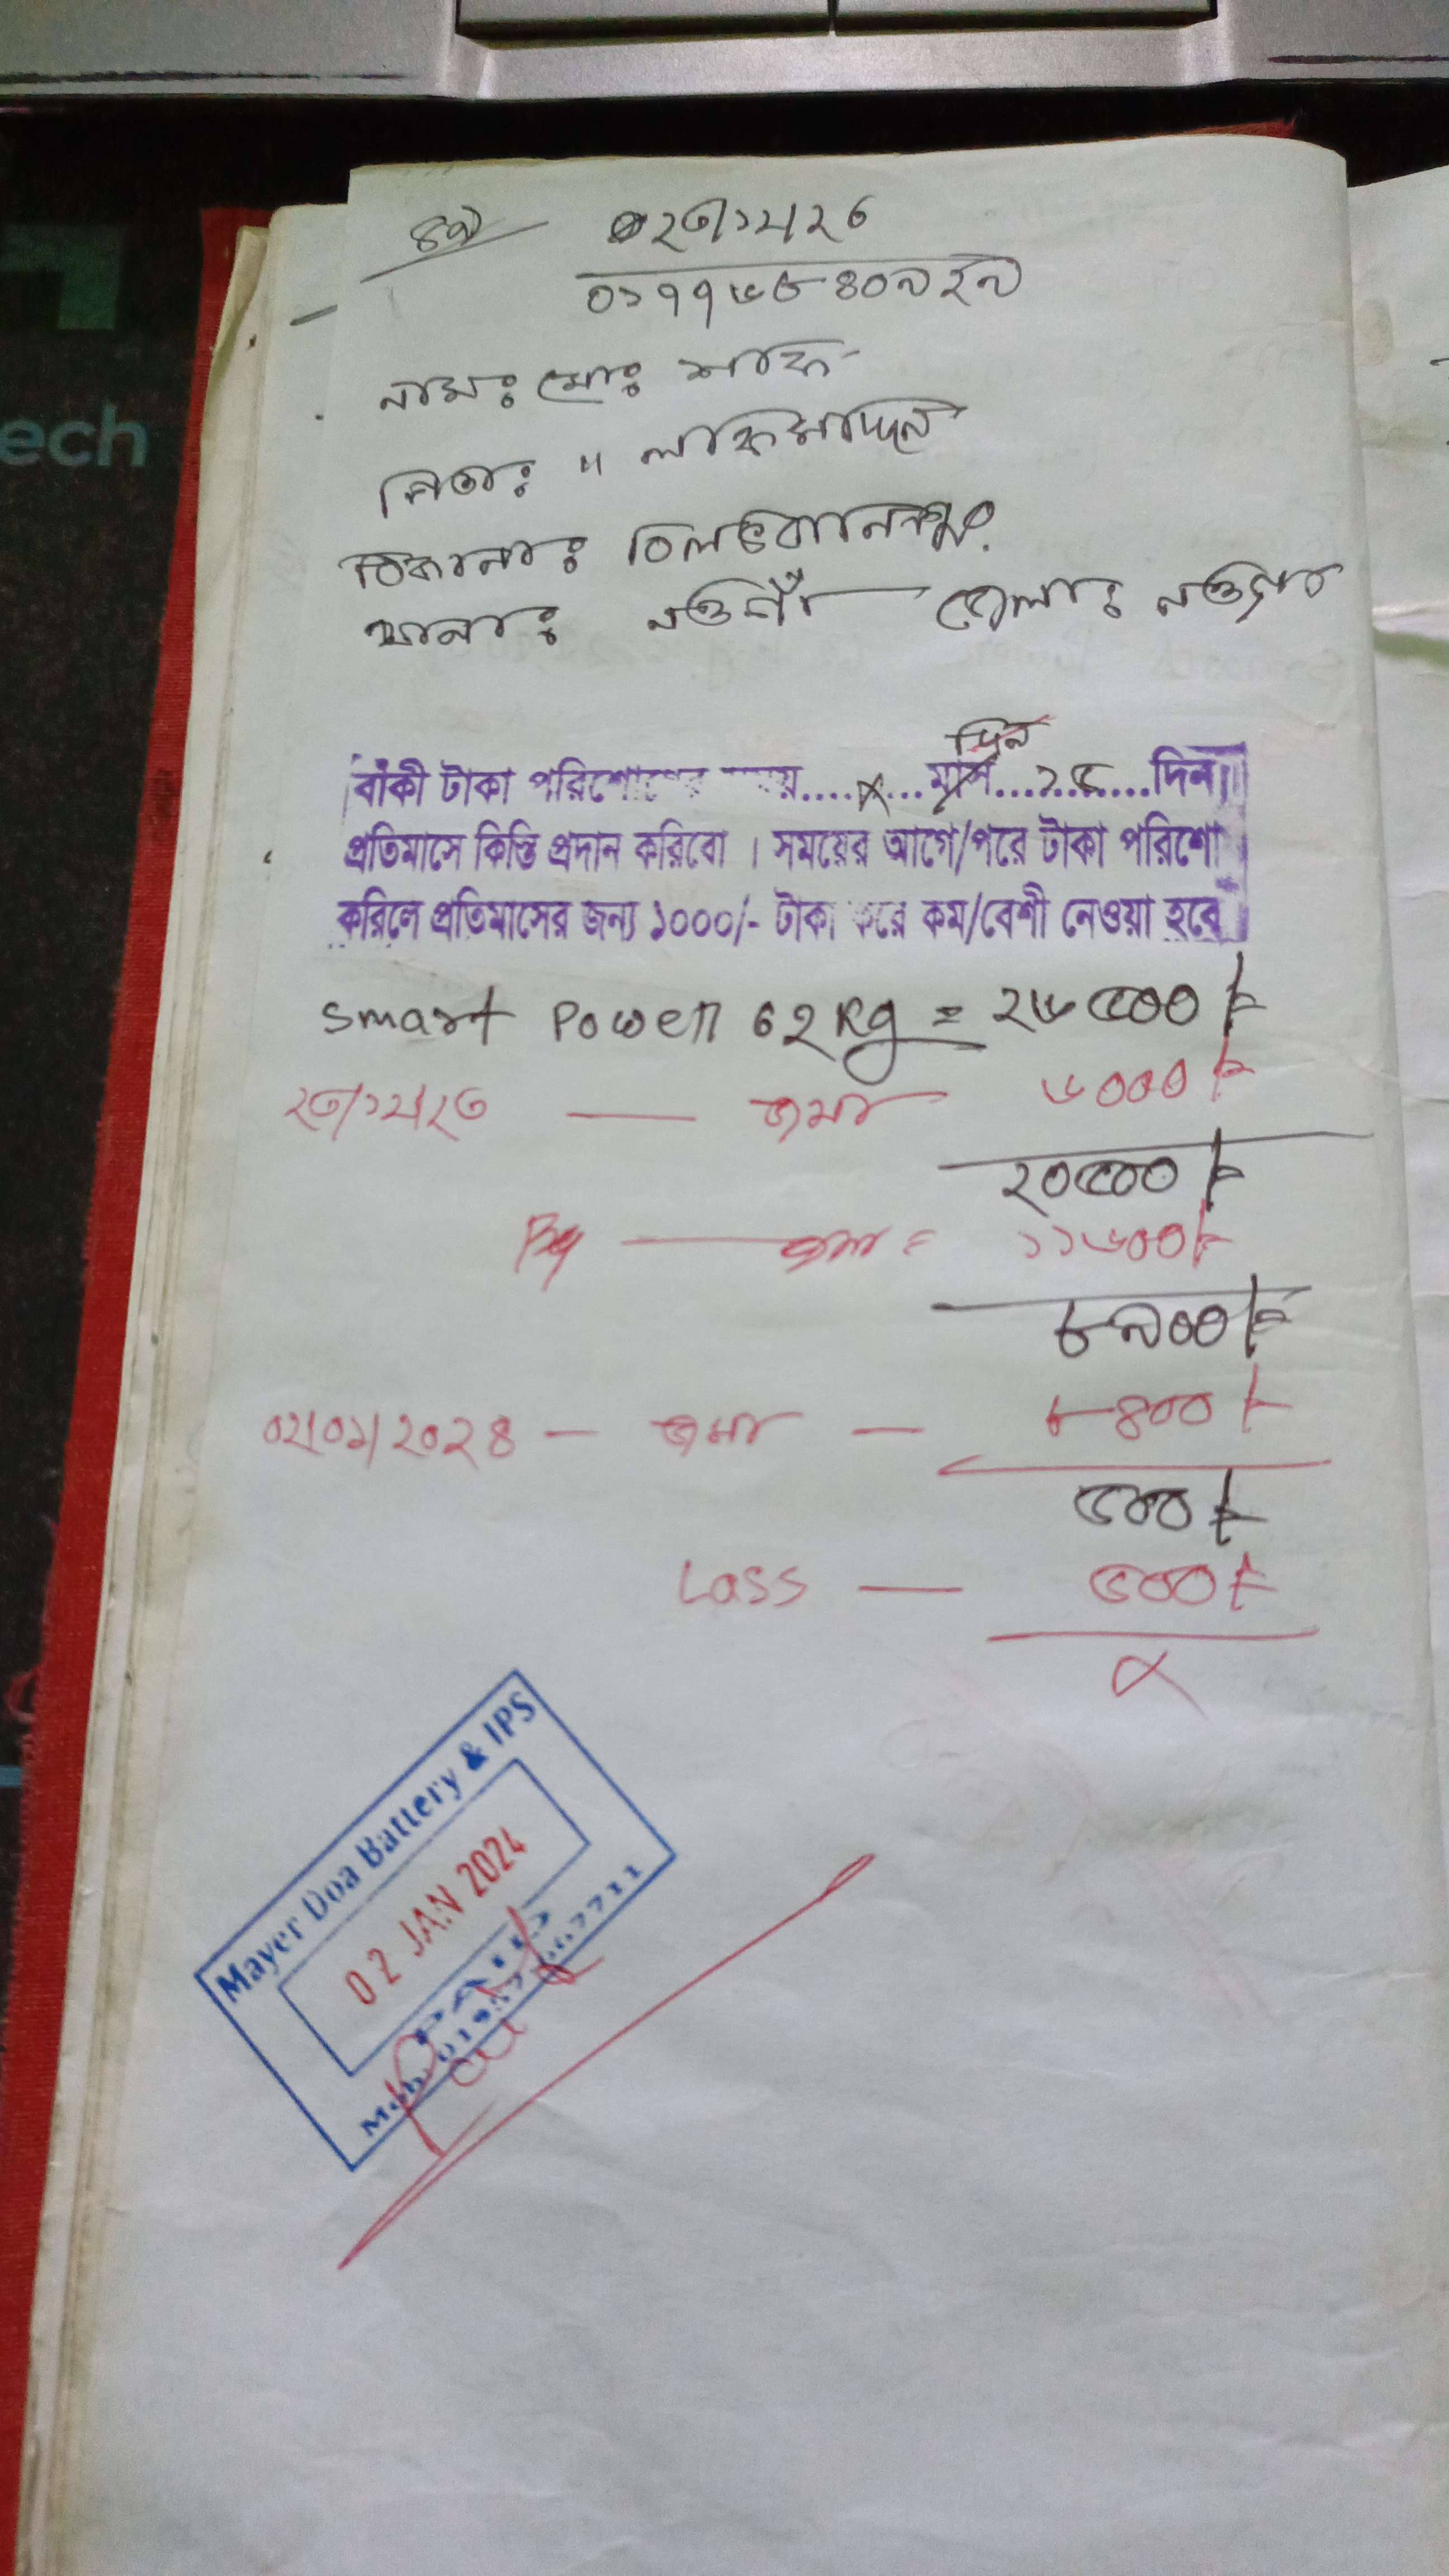 ৪৯
২৩/১২/২৩
০১৭৭৬৮৪০৯২৯
নামঃ মোঃ শাফি
পিতাঃ "
ঠিকানাঃ
থানাঃ নওগাঁ জেলাঃ নওগাঁ
দিন
বাঁকী টাকা পরিশোধের সময়....x...মাস...১৫...দিন।
প্রতিমাসে কিস্তি প্রদান করিবো । সময়ের আগে/পরে টাকা পরিশো
করিলে প্রতিমাসের জন্য ১০০০/- টাকা করে কম/বেশী নেওয়া হবে
Smart Power 62 Kg = ২৬৫০০৳
২৩/১২/২৩ — জমা ৬০০০৳
২০৫০০৳
By — জমা = ১১৬০০৳
৮৯০০৳
০২/০১/২০২৪ — জমা — ৮৪০০৳
৫০০৳
Loss — ৫০০৳
x
Mayer Doa Battery & IPS
02 JAN 2024
PAID
Paid
ech